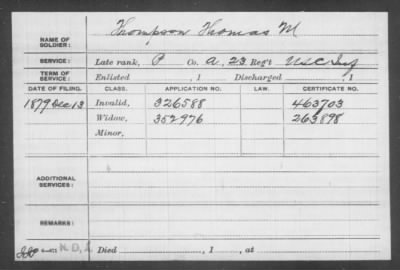 NAME OF SOLDIER: Thompson Thomas M
SERVICE: Late rank, P Co. A, 23 Reg't USC Inf
TERM OF SERVICE: Enlisted , 1 Discharged , 1
DATE OF FILING. CLASS. APPLICATION NO. CERTIFICATE NO.
1879 Dec 13 Invalid, 326588 463703
Widow, 352976 263898
Minor,
ADDITIONAL SERVICES:
REMARKS:
Died , 1 , at